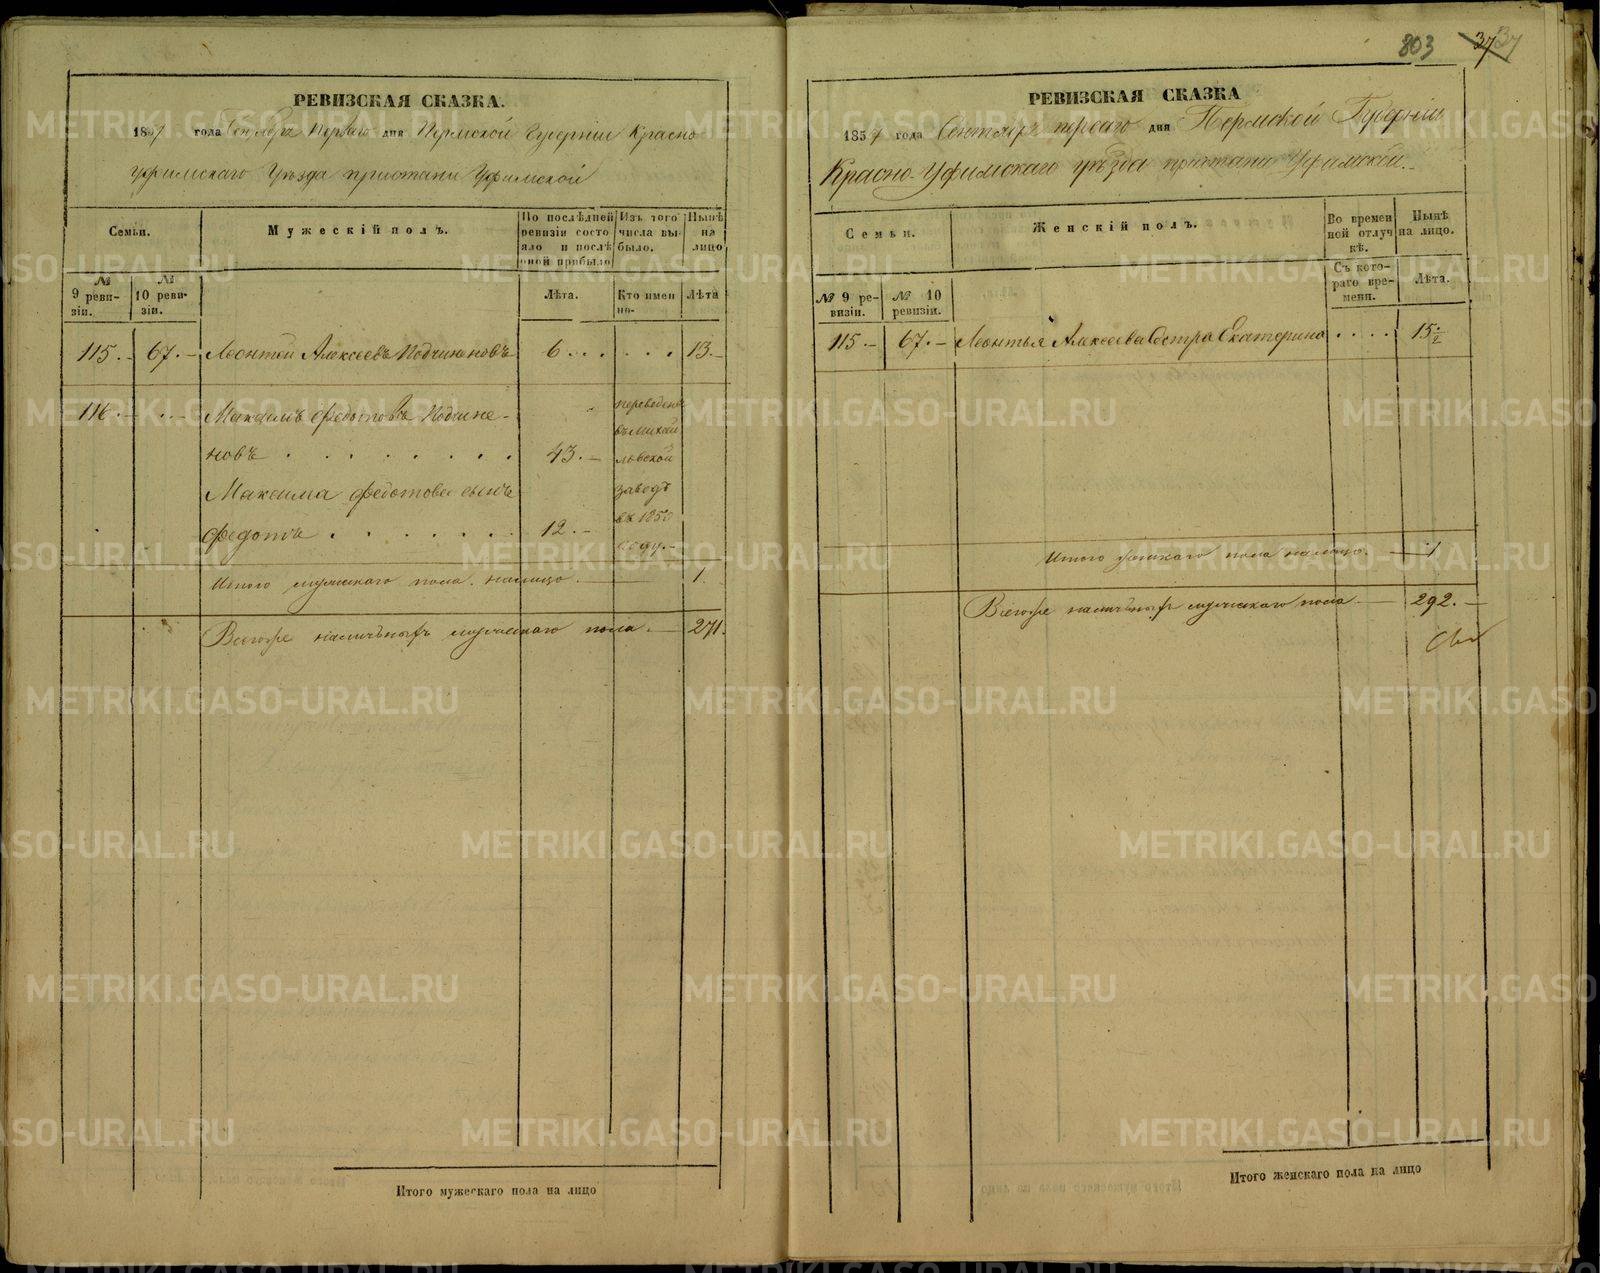 РЕВИЗСКАЯ СКАЗКА.
1857 года Сентября Перваго дня Пермской Губерніи Красно
уфимскаго Уѣзда пристани Уфимской
Семьи.
Мужескій полъ.
По послѣдней ревизіи состояло и послѣ оной прибыло
Изъ того числа выбыло.
Нынѣ на лицо
№ 9 ревизіи.
№ 10 ревизіи.
Лѣта.
Кто именно.
Лѣта
115. 67. Леонтій Алексеевъ Подчиненовъ 6 . . . . . . 13.
116. . . Максимъ Федотовъ Подчине-
новъ . . . . . . . . 43.
Максима Федотова сынъ
Федотъ . . . . . . . 12.
переведены
въ Михай
ловской
заводъ
въ 1850
году.
Итого мужескаго пола налицо. 1.
Всего же наличныхъ мужескаго пола. 271.
Итого мужескаго пола на лицо
803 37 37
РЕВИЗСКАЯ СКАЗКА
1857 года Сентября перваго дня Пермской Губерніи
Красно-Уфимскаго уѣзда пристани Уфимской.
Семьи.
Женскій полъ.
Во временной отлучкѣ.
Нынѣ на лицо.
№ 9 ревизіи.
№ 10 ревизіи.
Съ котораго времени.
Лѣта.
115. 67. Леонтья Алексеева Сестра Екатерина . . . . 15 1/2
Итого женскаго пола налицо. 1
Всего же наличныхъ мужескаго пола 292.
Итого женскаго пола на лицо
METRIKI.GASO-URAL.RU